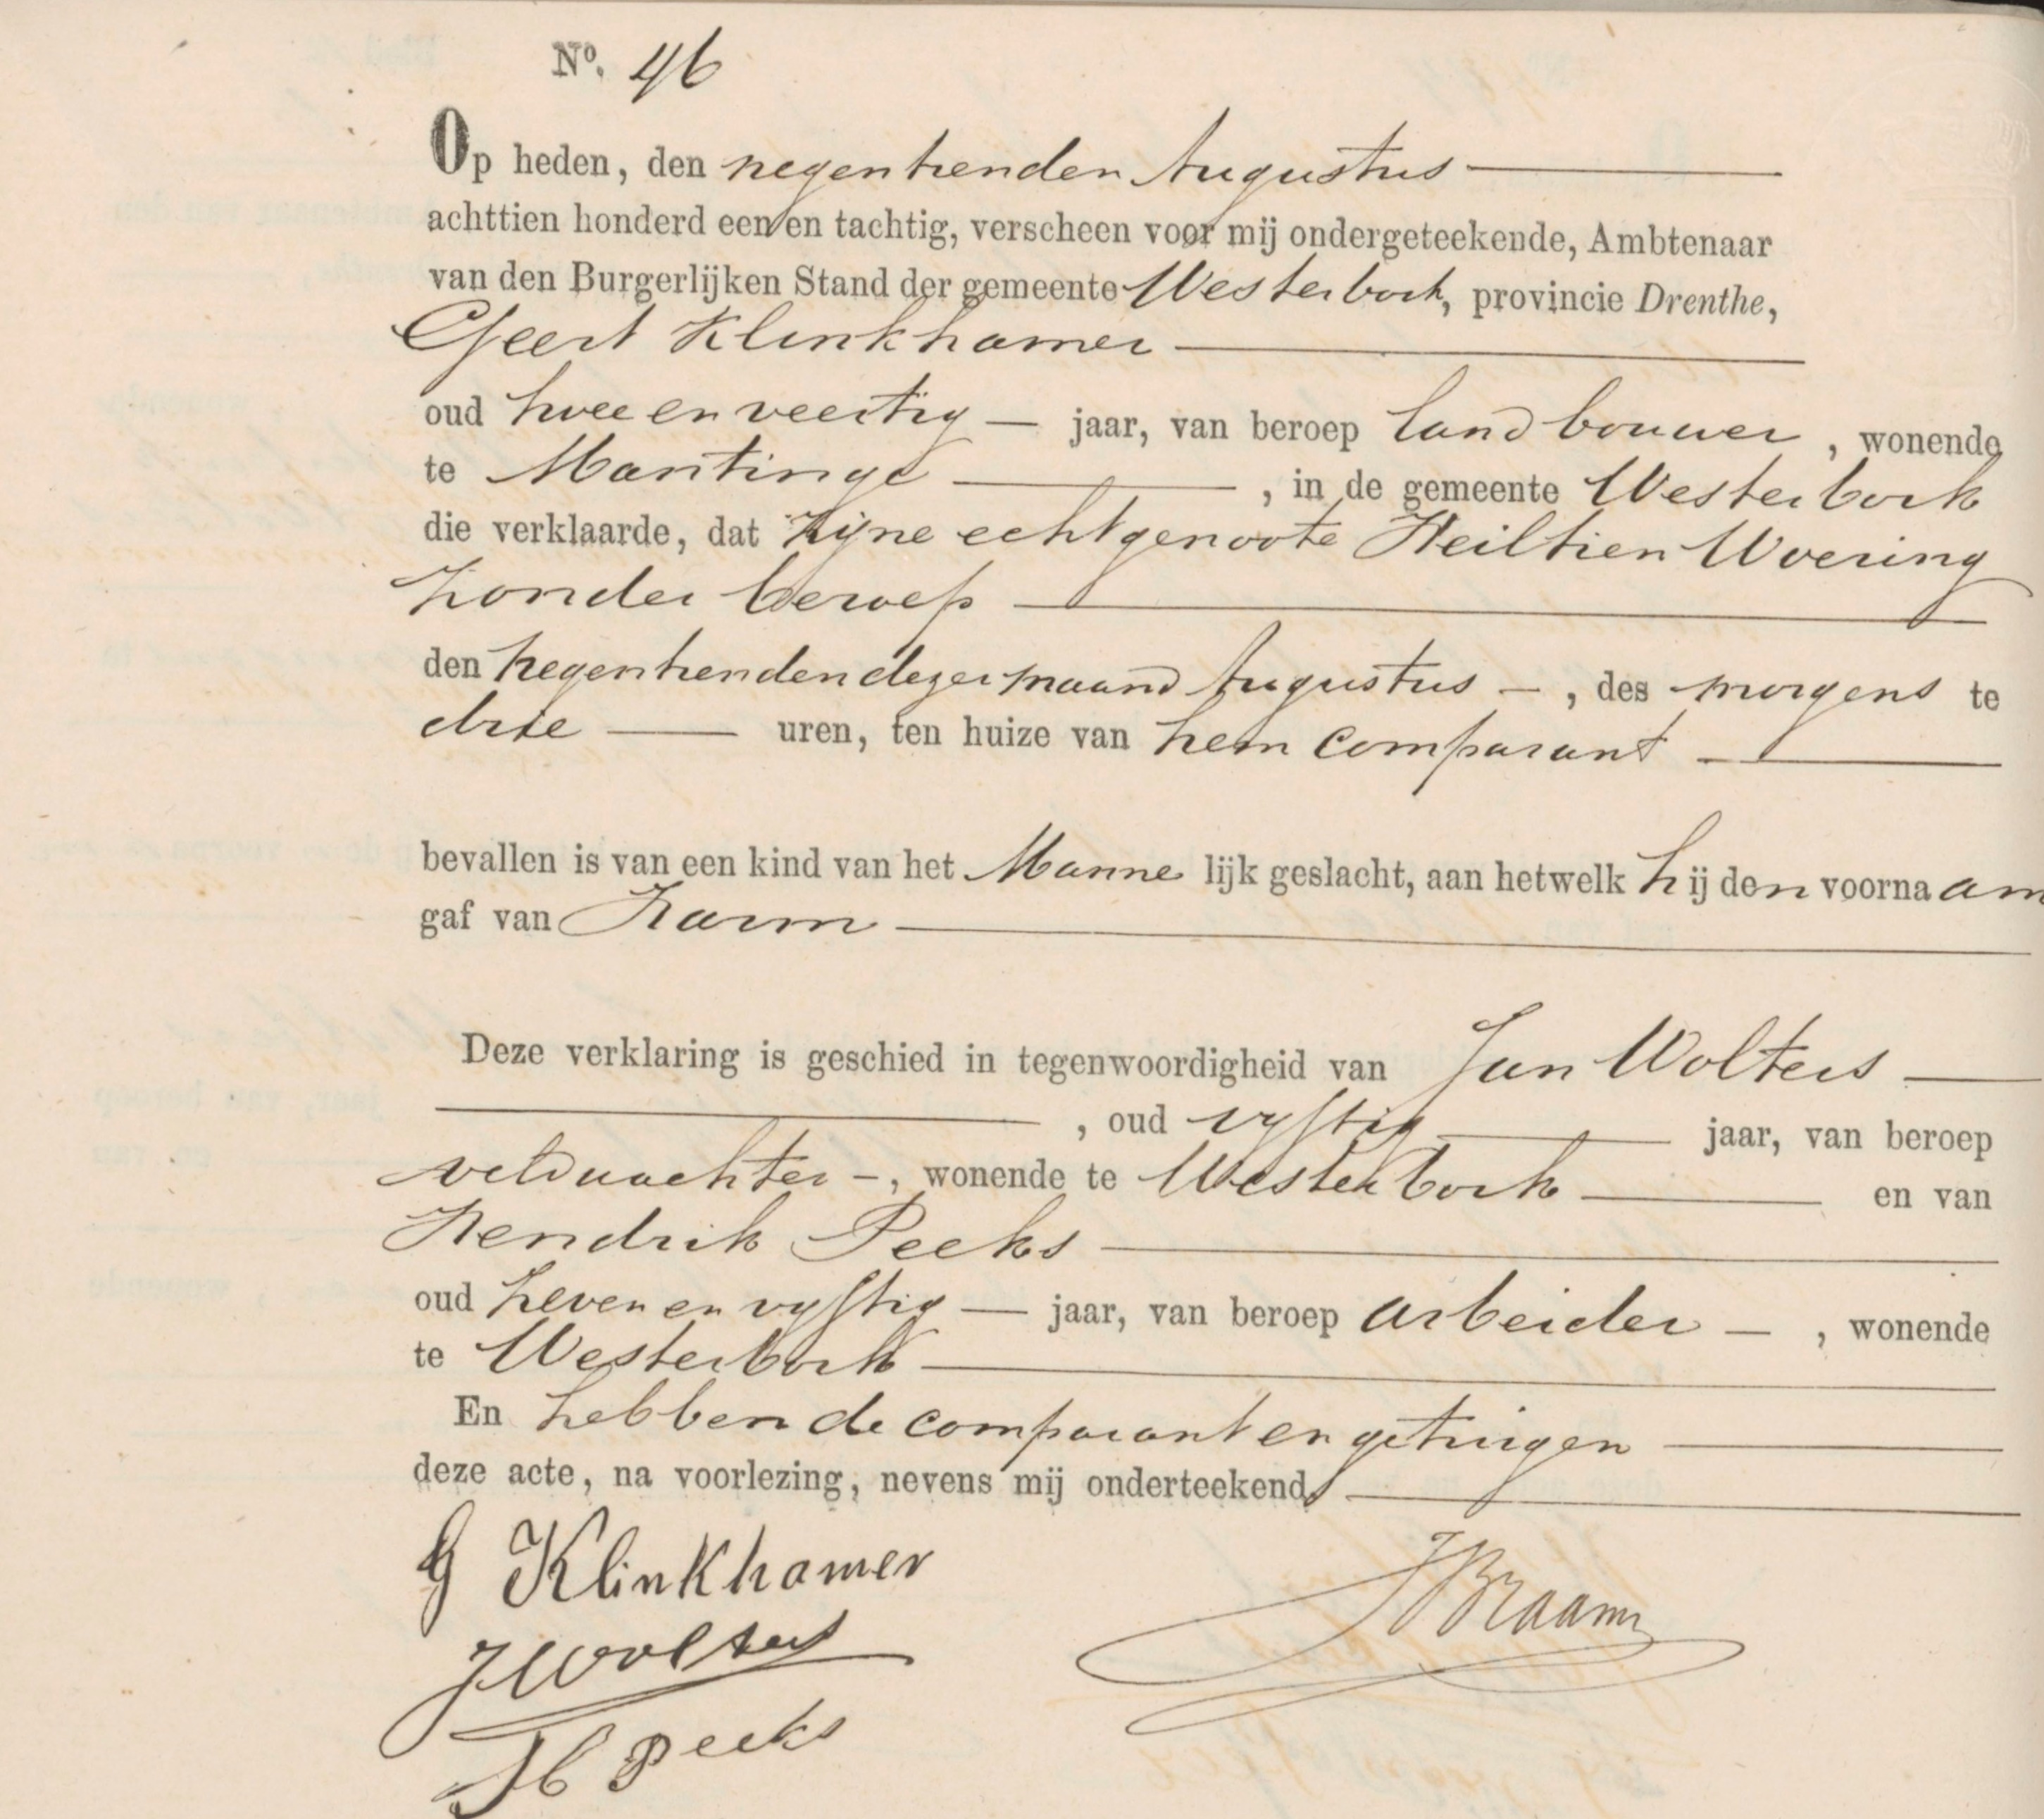 Nº. 46
Op heden, den negentienden Augustus
achttien honderd een en tachtig, verscheen voor mij ondergeteekende, Ambtenaar
van den Burgerlijken Stand der gemeente Westerbork, provincie Drenthe,
Geert Klinkhamer
oud twee en veertig — jaar, van beroep landbouwer, wonende
te Mantinge —, in de gemeente Westerbork
die verklaarde, dat zijne echtgenoote Heiltien Woering
zonder beroep
den negentienden dezer maand Augustus —, des morgens te
drie — uren, ten huize van hem comparant —
bevallen is van een kind van het Mannelijk geslacht, aan hetwelk hij den voornaam
gaf van Harm
Deze verklaring is geschied in tegenwoordigheid van Jan Wolters —
—, oud vyftig — jaar, van beroep
veldwachter —, wonende te Westerbork — en van
Hendrik Peeks
oud zeven en vyftig — jaar, van beroep arbeider —, wonende
te Westerbork
En hebben de comparant en getuigen
deze acte, na voorlezing, nevens mij onderteekend.
G Klinkhamer
JBraam
J Wolters
H Peeks